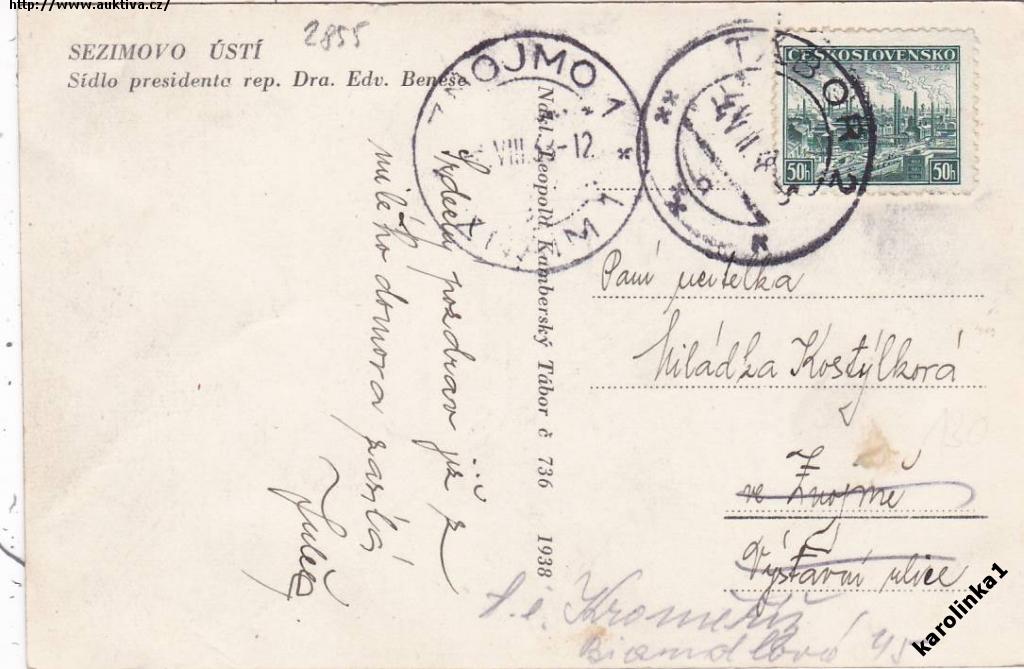 http://www.auktiva.cz/
2855
SEZIMOVO ÚSTÍ
Sídlo presidenta rep. Dra. Edv. Beneše
ZNOJMO 1
VIII. -12
ZNAIM 1
TÁBOR 2
ČESKOSLOVENSKO
PLZEŇ
50h 50h
Nákl. Leopold Kamberský Tábor č 736 1938
Srdečný pozdrav již z
milého domova zasílá
Paní učitelka
Miládka Kostýlková
ve Znojmě
Výstavní ulice
t. č. Kroměříž
karolinka1